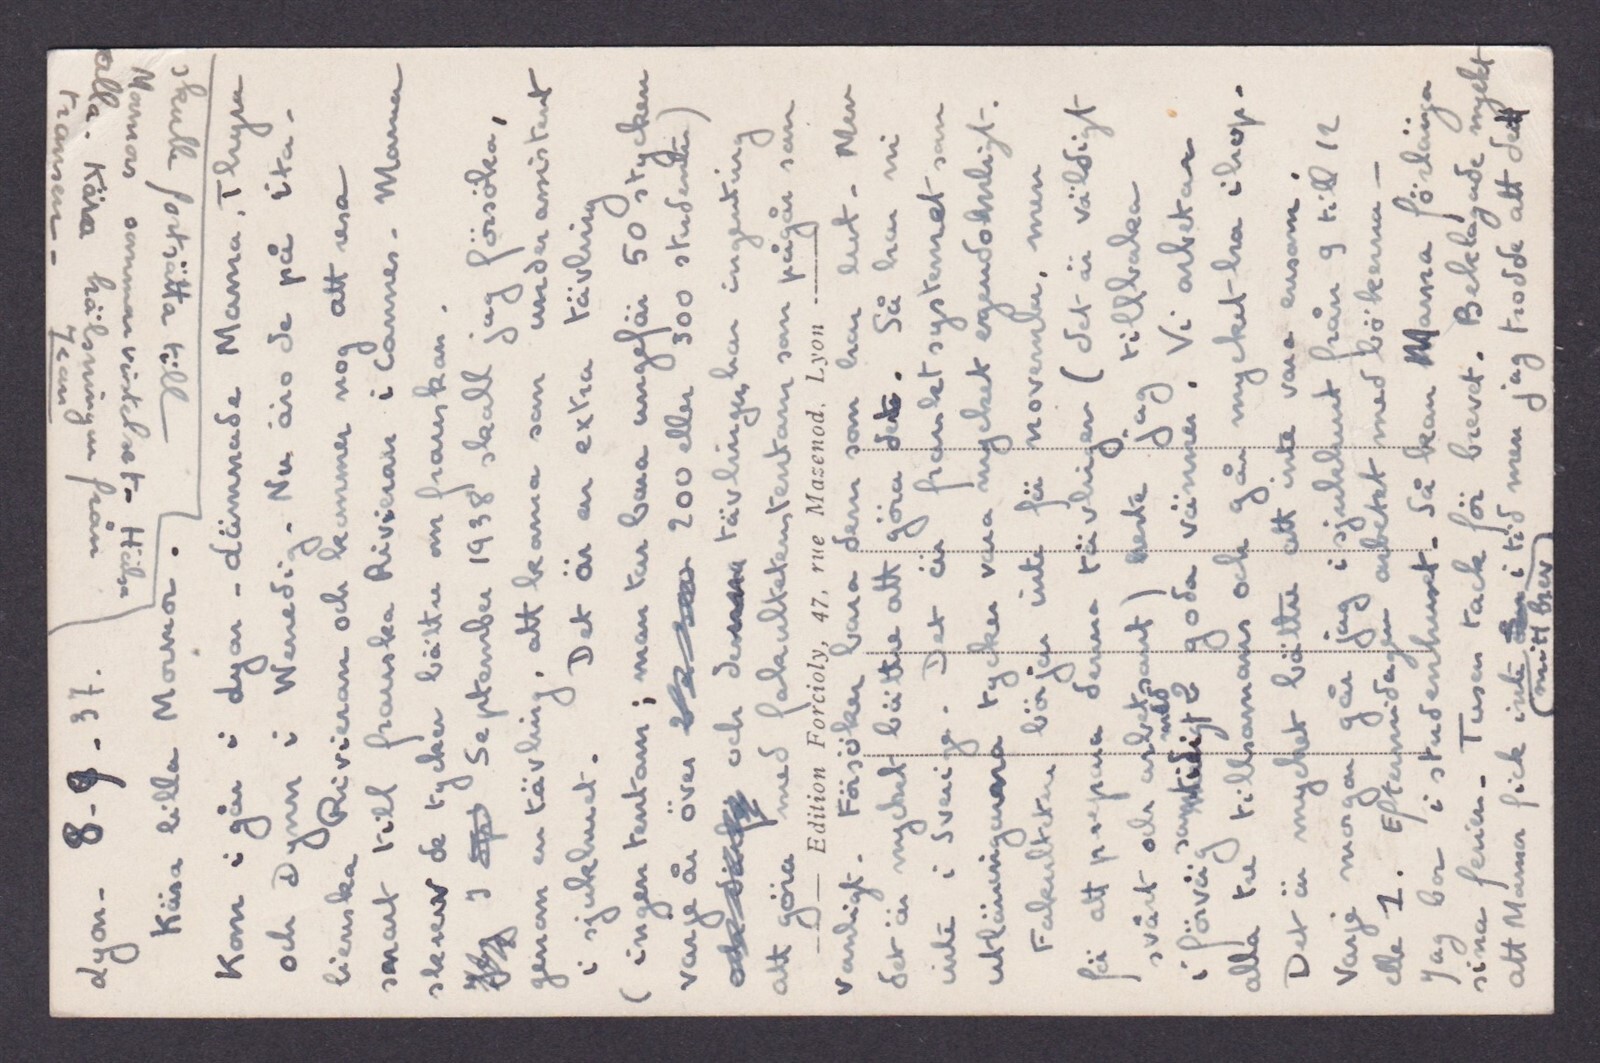 Lyon- 8-9-37.
Kära lilla Mormor.
Kom i går i Lyon - lämnade Mama, Thyra
och Dynn i Wenedig. Nu äro de på ita-
lienska Rivieran och kommer nog att resa
snart till franska Rivieran i Cannes. Mama
skrev de tycker bättre om franskan.
I September 1938 skall jag försöka,
genom en tävling, att komma som underassistent
i sjukhuset. Det är en extra tävling
(ingen tentam; man tar bara ungefär 50 stycken
varje år över 200 eller 300 studenter)
och denna tävlingen har ingenting
att göra med fakultetentam som pågår som
Edition Forcioly, 47, rue Mazenod, Lyon
vanligt. Försöker bara dem som han lust. Men
det är mycket bättre att göra det. Så har ni
inte i Sverige. Det är franska systemet som
utläningarna tycker vara mycket egendomligt.
Fakulteten börjar inte för november, men
för att prepara denna tävlingen (det är väldigt
svårt och arbetsamt) reste jag tillbaka
i förväg samtidigt med 2 goda vänner. Vi arbetar
alla tre tillsammans och går mycket bra ihop.
Det är mycket bättre att inte vara ensam.
Varje morgon går jag i sjukhuset från 9 till 12
elle 1. Eftermiddagen arbetet med böckerna -
Jag bor i studenthuset. Så kan Mama förlänga
sina ferier. Tusen tack för brevet. Beklagade mycket
att Mamma fick inte i tid men jag trodde att det
mitt brev
skulle fortsätta till
Mormors sommarvistelset. Hälsa
alla. Kära hälsningen från
fransen - Jean